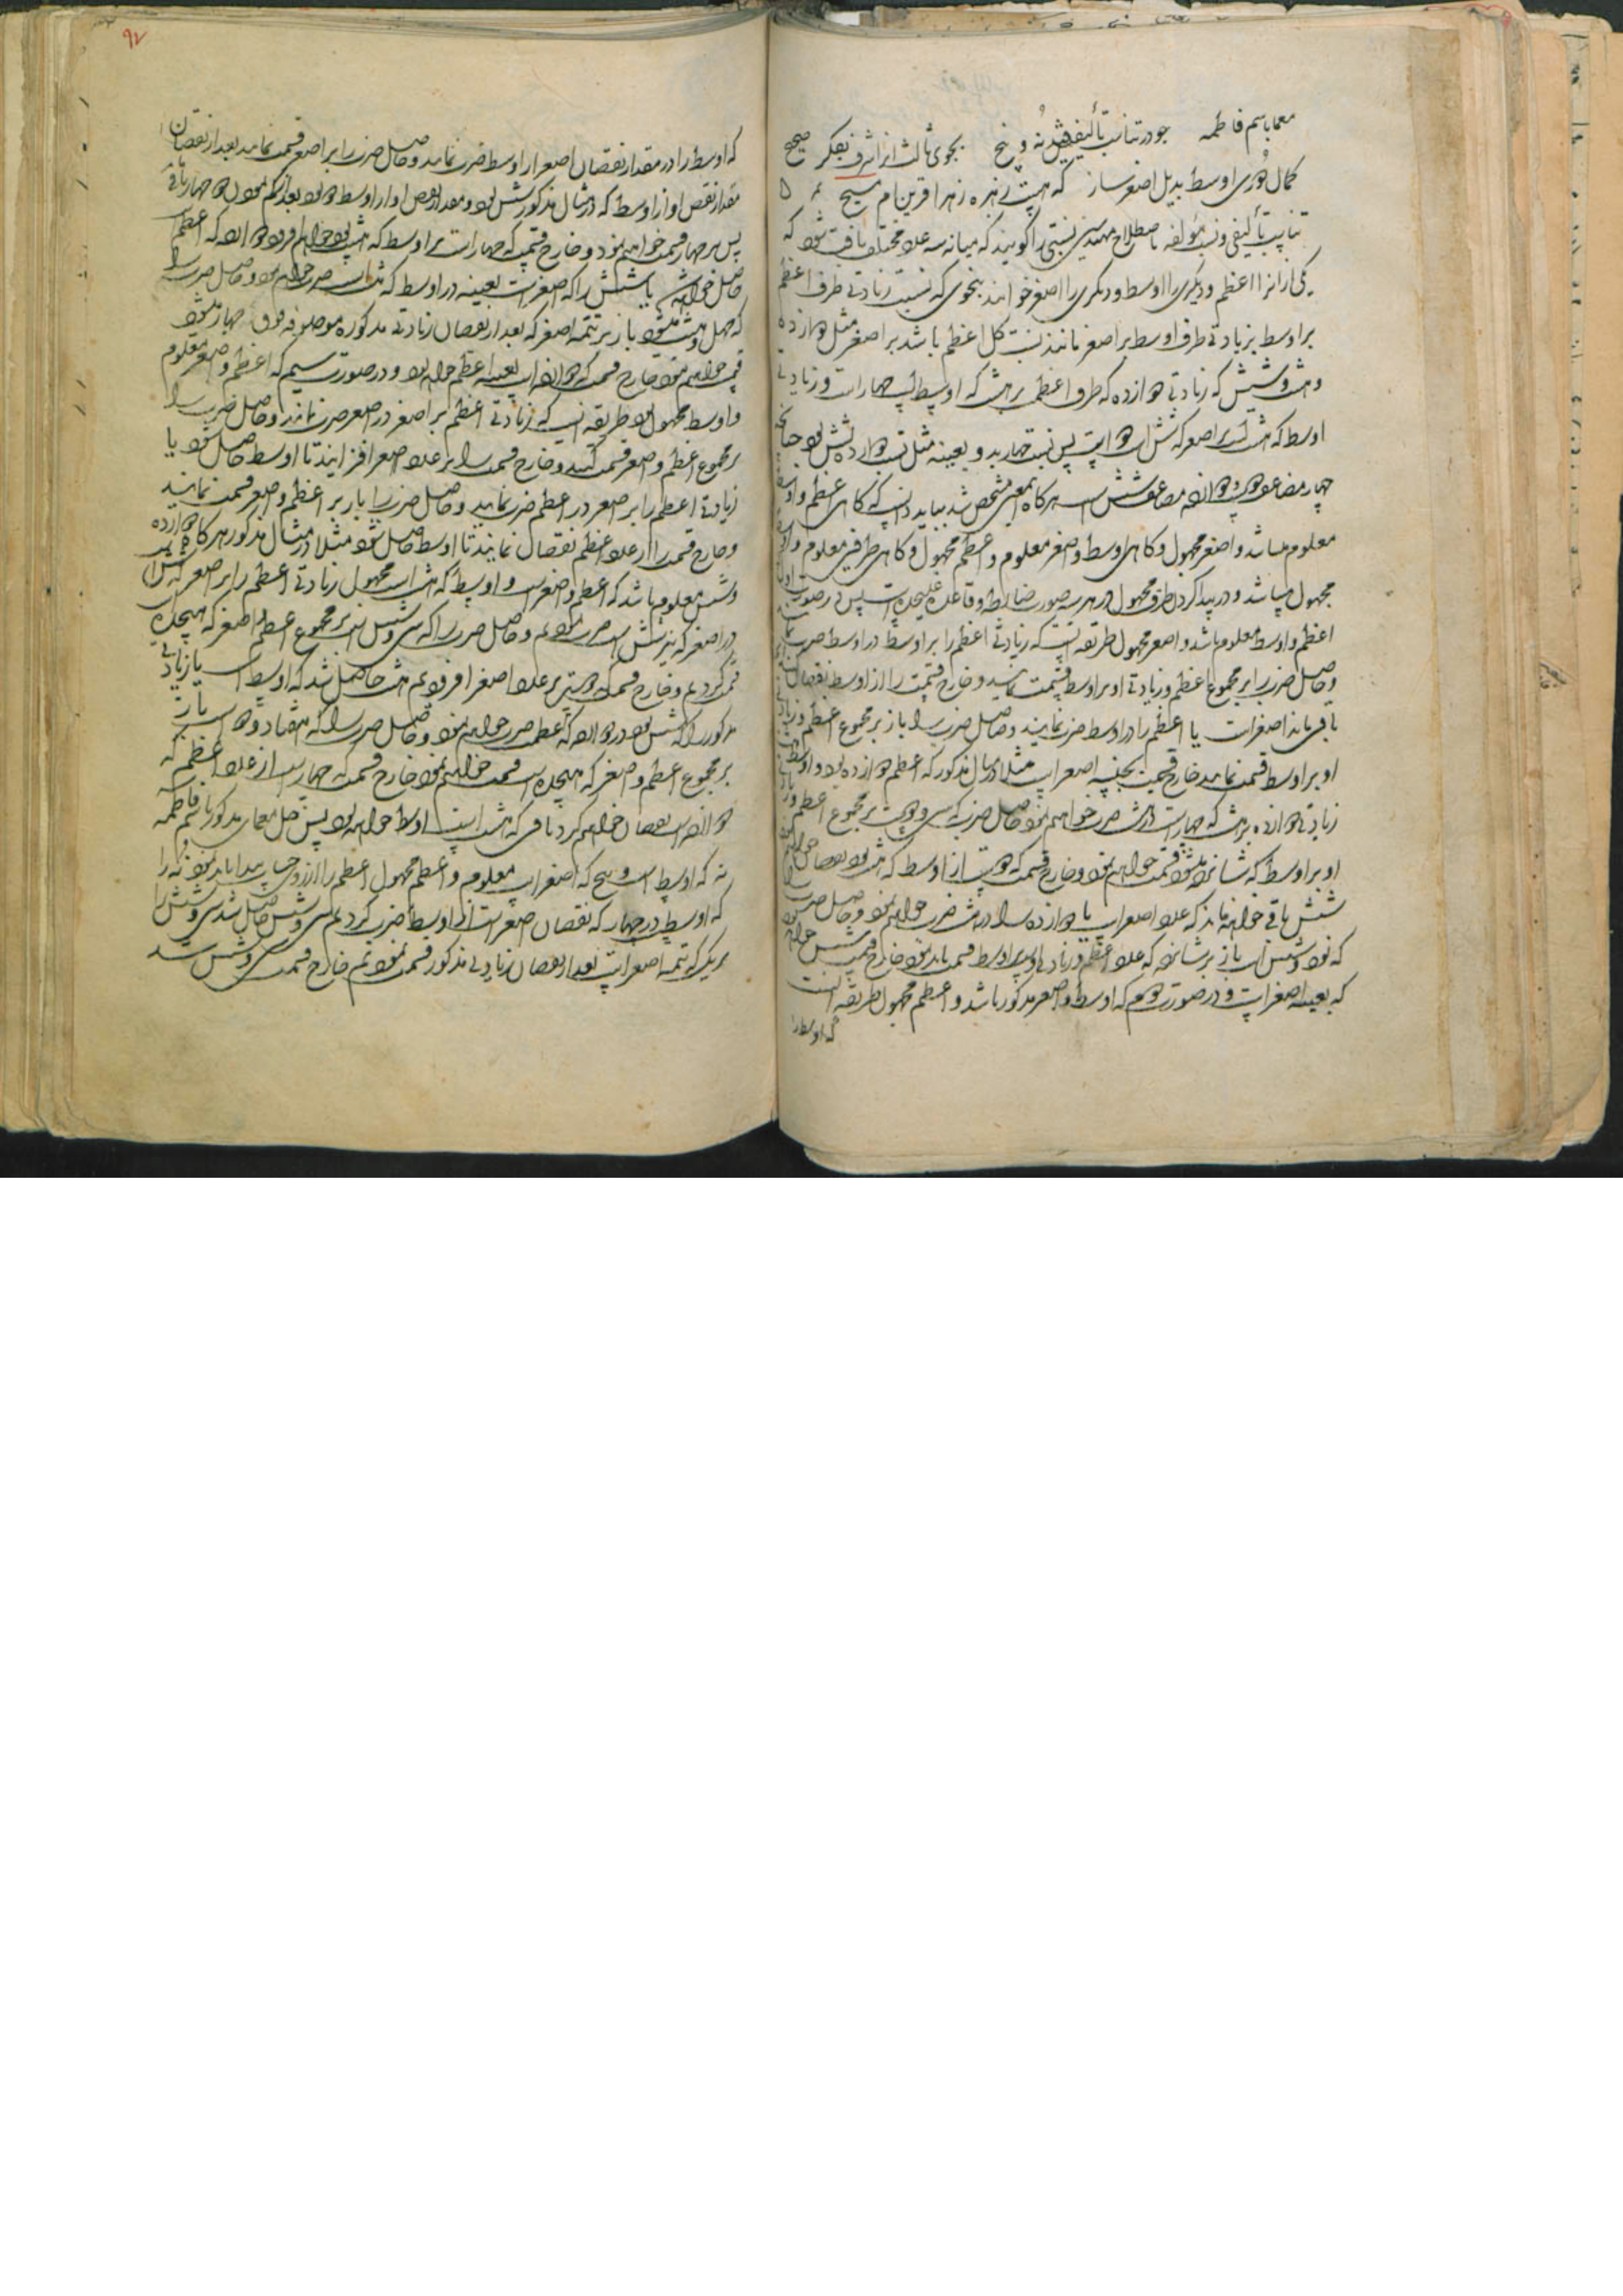 معما باسم فاطمه جو در تناسب تألیفی نه و پنج بجوی ثالث از اشرف بفکر صحیح
کمال اوسط بدیل اصغر ساز که هست زهره زهرا قرین ام مسیح
تناسب تألیفی و نسبت مؤلفه باصطلاح مهندسین نسبتی را گویند که میانه سه عدد مختلف یافت شود که
یکی از آنرا اعظم و دیگری را اوسط و دیگری را اصغر خوانند بنحوی که نسبت زیادتی طرف اعظم
بر اوسط بزیادتی طرف اوسط بر اصغر مانند نسبت کل اعظم باشد بر اصغر مثل دوازده
و هشت و شش که زیادتی دوازده که طرف اعظم بر هشت که اوسط است چهار است و زیادتی
اوسط که هشت است بر اصغر که شش است دو است پس نسبت چهار بدو بعینه مثل نسبت دوازده بشش بود چنانچه
چهار مضاعف دو است دوازده مضاعف شش است هرگاه اینمعنی مشخص شد بباید دانست که گاهی اعظم و اوسط
معلوم میباشد و اصغر مجهول و گاهی اوسط و اصغر معلوم و اعظم مجهول و گاهی طرفین معلوم و اوسط
مجهول میباشد و در پیدا کردن طرف مجهول در هر سه صورت ضابطه و قاعده علیحده است پس در صورت اول که
اعظم و اوسط معلوم باشد و اصغر مجهول طریقه آنست که زیادتی اعظم را بر اوسط در اوسط ضرب نمایند
و حاصل ضرب را بر مجموع اعظم و زیادتی او بر اوسط قسمت نمایند و خارج قسمت را از اوسط نقصان کنند
باقی ماند اصغر است یا اعظم را در اوسط ضرب نمایند و حاصل ضرب را باز بر مجموع اعظم و زیادتی
او بر اوسط قسمت نمایند خارج قسمت بجنسه اصغر است مثلا در مثال مذکور که اعظم دوازده بود و اوسط هشت
زیادتی دوازده بر هشت که چهار است در هشت ضرب خواهیم نمود حاصل ضرب که سی و دو است بر مجموع اعظم و زیادتی
او بر اوسط که شانزده میشود قسمت خواهیم نمود و خارج قسمت که دو است از اوسط که هشت بود نقصان خواهیم
شش باقی خواهد ماند که عدد اصغر است یا دوازده را در هشت ضرب خواهیم نمود و حاصل ضرب را
که نود و شش است باز بر شانزده که عدد اعظم و زیادتی او بر اوسط قسمت باید نمود خارج قسمت شش خواهد بود
که بعینه اصغر است و در صورت دوم که اوسط و اصغر مذکور باشد و اعظم مجهول طریقه آنست
که اوسط را
۹۷
که اوسط را در مقدار نقصان اصغر از اوسط ضرب نمایند و حاصل ضرب را بر اصغر قسمت نمایند بعد از نقصان
مقدار نقص او از اوسط که در مثال مذکور شش بود و مقدار نقص او از اوسط دو بود بعد از کم نمودن دو چهار باقی
پس بر چهار قسمت خواهیم نمود و خارج قسمت که چهار است بر اوسط که هشت بود خواهیم افزود دوازده که اعظم است
حاصل خواهد شد یا شش را که اصغر است بعینه در اوسط که هشت است ضرب خواهیم نمود و حاصل ضرب را
که چهل و هشت میشود باز بر تتمه اصغر که بعد از نقصان زیادتی مذکوره موصوفه فوق چهار میشود
قسمت خواهیم نمود خارج قسمت که دوازده است بعینه اعظم خواهد بود و در صورت سیم که اعظم و اصغر معلوم
و اوسط مجهول بود طریقه آنست که زیادتی اعظم بر اصغر در اصغر ضرب نمایند و حاصل ضرب را
بر مجموع اعظم و اصغر قسمت کنند و خارج قسمت را بر عدد اصغر افزایند تا اوسط حاصل شود یا
زیادتی اعظم را بر اصغر در اعظم ضرب نمایند و حاصل ضرب را باز بر اعظم و اصغر قسمت نمایند
و خارج قسمت را از عدد اعظم نقصان نمایند تا اوسط حاصل شود مثلا در مثال مذکور هرگاه دوازده
و شش معلوم باشد که اعظم و اصغر است و اوسط که هشت است مجهول زیادتی اعظم را بر اصغر که شش است
در اصغر که نیز شش است ضرب نمودیم و حاصل ضرب را که سی و شش است بر مجموع اعظم و اصغر که هیجده
قسمت کردیم و خارج قسمت که دو است بر عدد اصغر افزودیم هشت حاصل شد که اوسط است یا زیادتی
مذکور را که شش بود در دوازده که اعظم است ضرب خواهیم نمود و حاصل ضرب را که هفتاد و دو است باز
بر مجموع اعظم و اصغر که هیجده است قسمت خواهیم نمود خارج قسمت که چهار است از عدد اعظم که
دوازده است نقصان خواهیم کرد باقی که هشت است اوسط خواهد بود پس حل معمای مذکور باسم فاطمه
نه که اوسط است و پنج که اصغر است معلوم و اعظم مجهول اعظم را از روی حساب پیدا باید نمود نه را
که اوسط است در چهار که نقصان اصغر است از اوسط ضرب کردیم سی و شش حاصل شد سی و شش را
بر یک که تتمه اصغر است بعد از نقصان زیادتی مذکور قسمت نمودیم خارج قسمت سی و شش شد